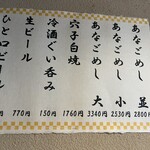 あなごめし 並 2800円
あなごめし 小 2530円
あなごめし 大 3340円
穴子白焼 1760円
冷酒ぐい呑み 150円
生ビール 770円
ひと口ビール